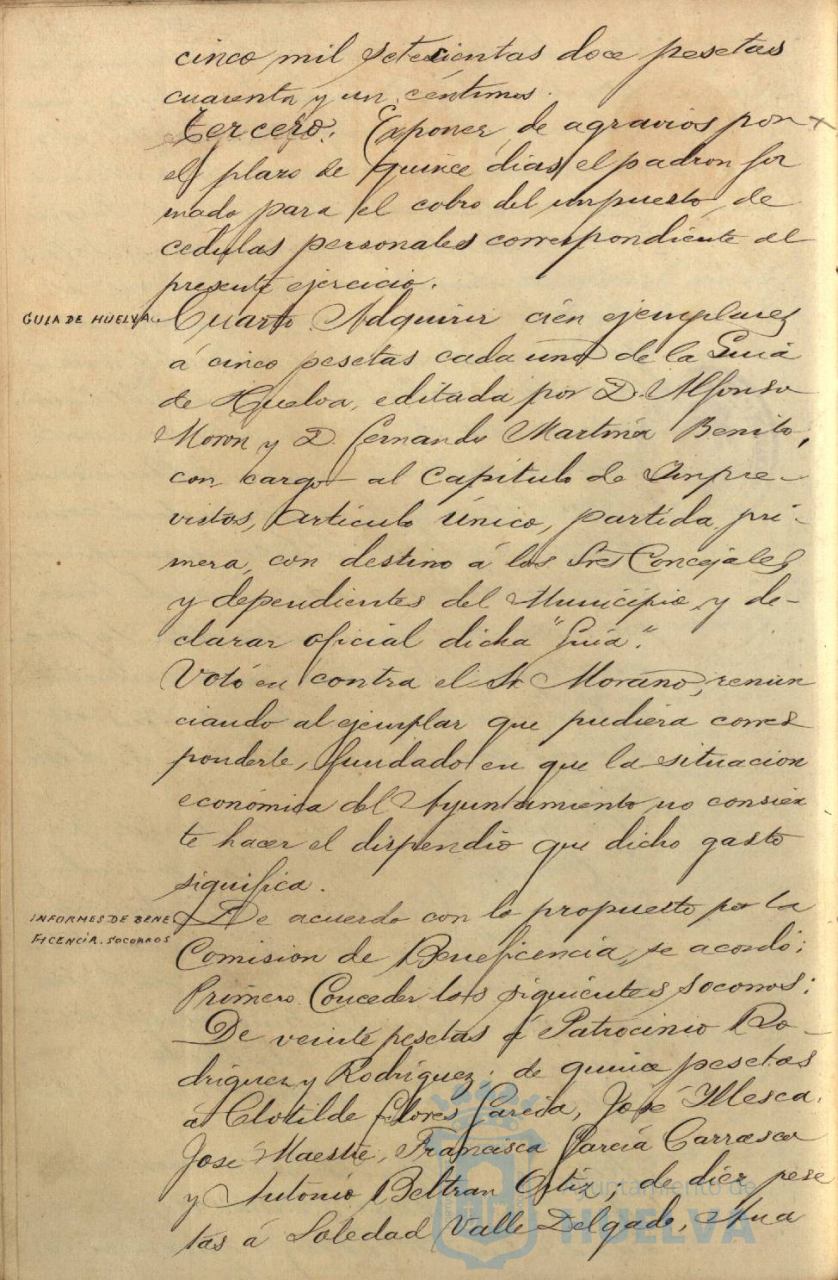 cinco mil setecientas doce pesetas
cuarenta y un céntimos.
Tercero. Exponer de agravios por
el plazo de quince dias el padron for
mado para el cobro del impuesto de
cédulas personales correspondiente al
presente ejercicio.
GUIA DE HUELVA.
Cuarto. Adquirir cien ejemplares
á cinco pesetas cada uno de la Guia
de Huelva, editada por D. Alfonso
Moron y D. Fernando Martin Benito,
con cargo al Capitulo de Impre-
vistos, Articulo Único, partida pri-
mera, con destino á los Sres Concejales
y dependientes del Municipio y de-
clarar oficial dicha "Guia".
Votó en contra el Sr Morano, renun
ciando al ejemplar que pudiera corres
ponderle, fundado en que la situacion
económica del Ayuntamiento no consien
te hacer el dispendio que dicho gasto
significa.
INFORMES DE BENE
FICENCIA. SOCORROS
De acuerdo con lo propuesto por la
Comision de Beneficencia, se acordó:
Primero. Conceder los siguientes socorros:
De veinte pesetas á Patrocinio Ro-
driguez y Rodriguez; de quince pesetas
á Clotilde Flores Garcia, José Yllesca.
José Maestre, Francisca Garcia Carrasco
y Antonio Beltran Ortiz; de diez pese
tas á Soledad Valle Delgado, Ana
Ayuntamiento de
HUELVA